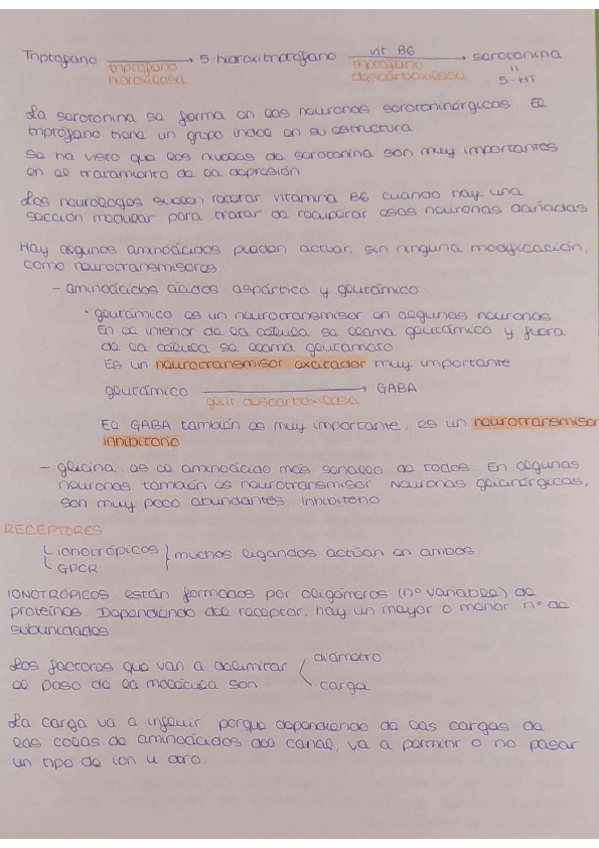 Triptófano → 5-hidroxitriptófano → serotonina
triptófano hidroxilasa
vit. B6
triptófano descarboxilasa
=
5-HT
La serotonina se forma en las neuronas serotoninérgicas. El
triptófano tiene un grupo indol en su estructura.
Se ha visto que los niveles de serotonina son muy importantes
en el tratamiento de la depresión
Los neurólogos suelen recetar vitamina B6 cuando hay una
sección medular para tratar de recuperar esas neuronas dañadas
Hay algunos aminoácidos pueden actuar, sin ninguna modificación,
como neurotransmisores
- aminoácidos ácidos: aspártico y glutámico
· glutámico es un neurotransmisor en algunas neuronas.
En el interior de la célula se llama glutámico y fuera
de la célula se llama glutamato
Es un neurotransmisor excitador muy importante
glutámico → GABA
glut descarboxilasa
El GABA también es muy importante, es un neurotransmisor
inhibitorio
- glicina: es el aminoácido más sencillo de todos. En algunas
neuronas también es neurotransmisor. Neuronas glicinérgicas,
son muy poco abundantes. Inhibitorio
RECEPTORES
ionotrópicos } muchos ligandos actúan en ambos
GPCR
IONOTRÓPICOS: están formados por oligómeros (nº variable) de
proteínas. Dependiendo del receptor, hay un mayor o menor nº de
subunidades
Los factores que van a delimitar
el paso de la molécula son
diámetro
carga
La carga va a influir porque dependiendo de las cargas de
las colas de aminoácidos del canal, va a permitir o no pasar
un tipo de ion u otro.